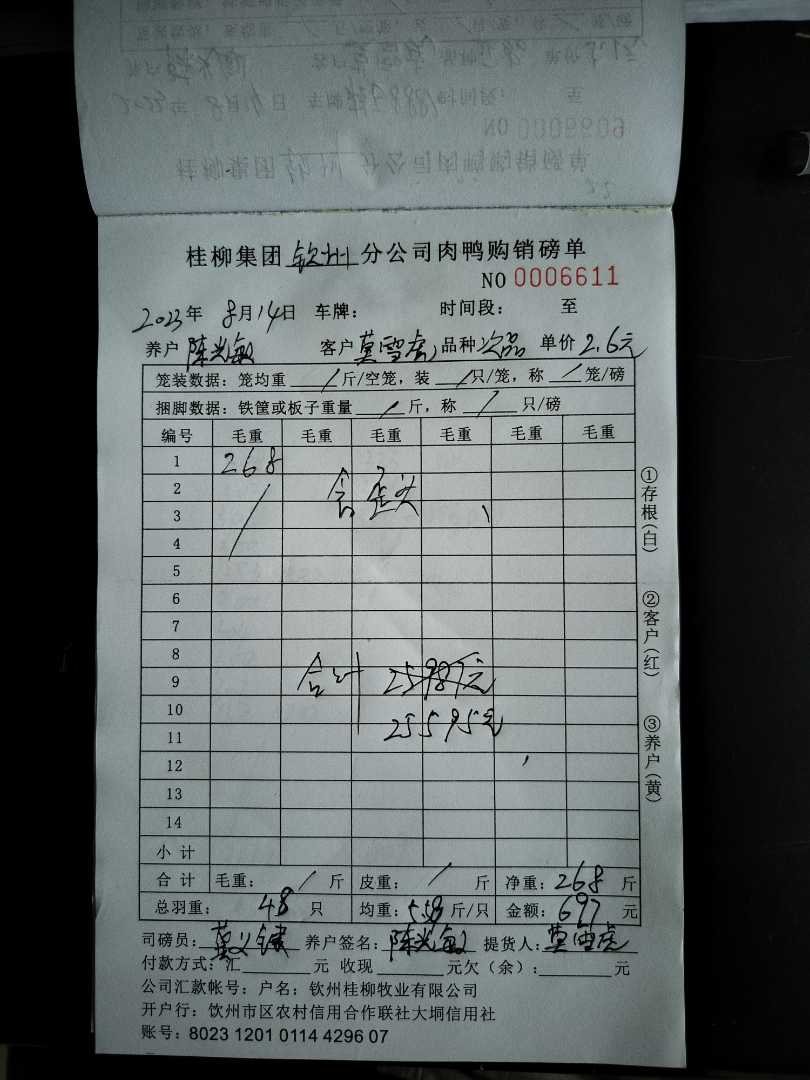 桂柳集团 钦州 分公司肉鸭购销磅单
NO 0006611
2023年 8月14日 车牌： 时间段： 至
养户 陈光敏 客户 莫雪虎 品种 次品 单价 2.6元
笼装数据：笼均重 / 斤/空笼，装 / 只/笼，称 / 笼/磅
捆脚数据：铁筐或板子重量 / 斤，称 / 只/磅
编号 毛重 毛重 毛重 毛重 毛重 毛重
1 268
2 含歪头
3
4
5
6
7
8
9 合计 25987元
10
11 25595元
12
13
14
小计
合计 毛重： / 斤 皮重： / 斤 净重：268 斤
总羽重： 48 只 均重：5.58 斤/只 金额：697 元
司磅员： 养户签名：陈光敏 提货人：莫雪虎
付款方式：汇 元 收现 元欠（余）： 元
公司汇款帐号：户名：钦州桂柳牧业有限公司
开户行：钦州市区农村信用合作联社大垌信用社
账号：8023 1201 0114 4296 07
①存根（白）
②客户（红）
③养户（黄）